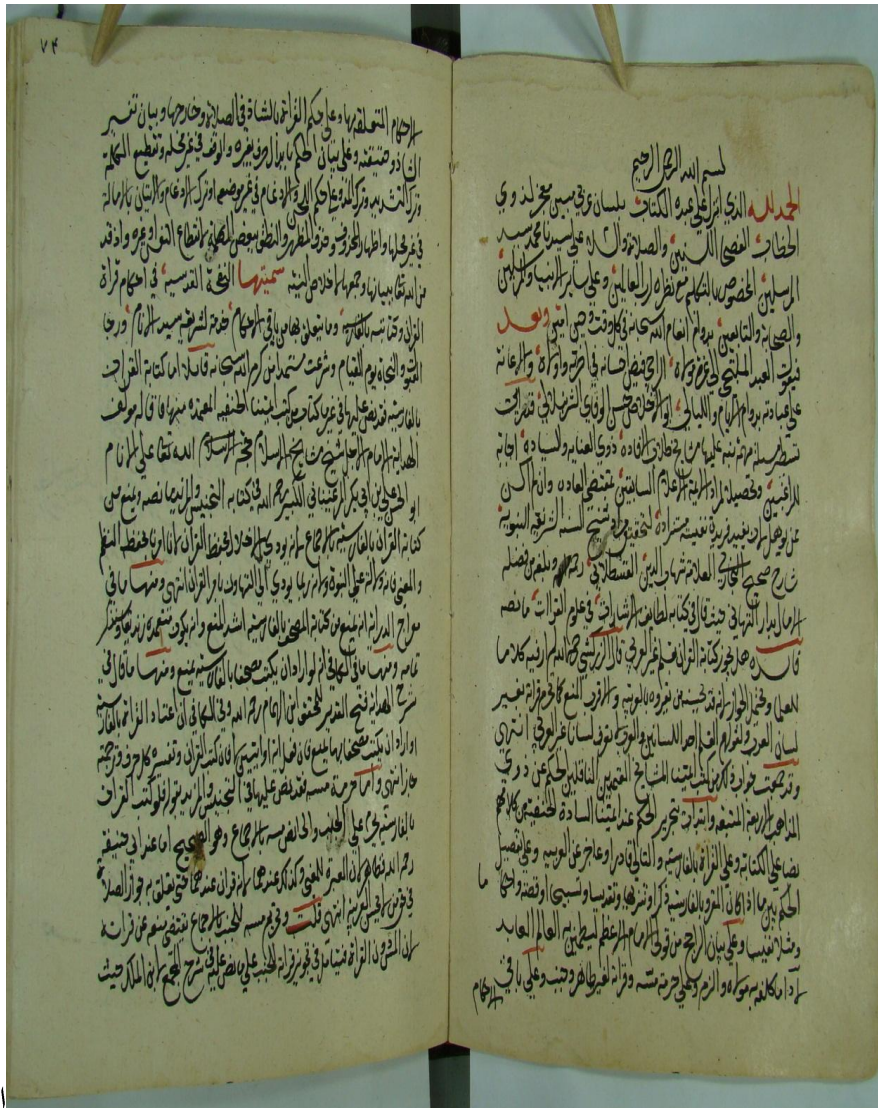 بسم الله الرحمن الرحيم
الحمد لله الذي انزل على عبده الكتاب بلسان عربي مبين معجز لذوي
الخطاب الفصحا اللسنين والصلاة والسلام على سيدنا محمد سيد
المرسلين المخصوص بالتكلم مع نظره لرب العالمين وعلى ساير الانبيا والمرسلين
والصحابة والتابعين بدوام انعام الله سبحانه في كل وقت وحين امين وبعد
فيقول العبد الملتجي الى عز مولاه الراجي فيض احسانه في اخرته واولاه والاعانة
على عبادته بدوام الايام والليالي ابو الاخلاص حسن الوفاي الشرنبلالي
تسطر مسئلة مهمة نبه عليها ذوي العناية والسيادة اجابة
للراغبين وتحصيلا لمراد ايمة الاعلام السابقين بمقتضى العادة وان لم اكن
شيخ السنة الشريفة النبوية
شارح صحيح البخاري العلامة شهاب الدين القسطلاني رحمه الله وبلغه من فضله
الامال بدار التهاني حيث قال في كتابه لطايف الاشارات في علوم القراات ما نصه
هل يجوز كتابة القران بقلم غير العربي قال الزركشي رحمه الله لم ار فيه كلاما
للعلما ويحتمل الجواز لانه قد يحسنه من يقروه بالعربية والاقرب المنع كما تحرم قراته بغير
لسان العرب ولقولهم القلم احد اللسانين والعرب لا تعرف لسانا غير العربي انتهى
وقد جمعت جوابه من كتب ايمتنا المشايخ المعتمدين الناقلين الحكم عن ذوي
المذاهب الاربعة المتبعة وابتدات بتحرير الحكم عند ايمتنا السادة الحنفية من كلامهم
نصا على الكتابة وعلى القراة بالفارسية والتالي قادر او عاجز عن العربية وعلى تفصيل
الحكم بين ما اذا كان المقرو بالفارسية ذكرا وتنزيها وتقديسا وتسبيحا او قصة واحكاما
ومثلا نفيسا وعلى بيان الراجح من قولي الامام الاعظم ليطمئن به العالم العابد
وعلى حرمة مسه وقراته لغير طاهر وجنب وعلى باقي
الاحكام
٧٤
الاحكام المتعلقة بها وعلى حكم القراة بالشاذة في الصلاة وخارجها وبيان تفسير
الشاذ وحقيقته وعلى بيان الحكم بابدال حرف بغيره والوقف في غير محله وتقطيع الكلمة
وترك التشديد وترك المد وعلى حكم اللحن والادغام في غير موضعه او ترك الادغام والاتيان بالامالة
في غير محلها واظهار المحذوف وحذف المظهر والنطق ببعض الكلمة لانقطاع النفس او غيره واذ قد
من الله تعالى ببيانها وجمعها لاخلاص النية سميتها النفحة القدسية في احكام قراة
القران وكتابته بالفارسية وما يتعلق بها من باقي الاحكام خدمة لشريعة سيد الانام ورجا
القبول والنجاة يوم القيام وشرعت مستمدا من كرم الله سبحانه قايلا اما كتابة القران
بالفارسية فقد نص عليها في غير ما كتاب من كتب ايمتنا الحنفية المعتمدة منها ما قاله مولف
الهداية الامام الاجل شيخ مشايخ الاسلام حجة الله تعالى على الانام
ابو الحسن علي بن ابي بكر المرغيناني الكبير رحمه الله في كتابه التجنيس والمزيد ما نصه ويمنع من
كتابة القران بالفارسية بالاجماع لانه يودي الى الاخلال بحفظ القران لانا امرنا بحفظ النظم
والمعنى فانه دلالة على النبوة ولانه ربما يودي الى التهاون بامر القران انتهى ومنها ما في
معراج الدراية انه يمنع من كتابة المصحف بالفارسية اشد المنع وانه يكون متعمده زنديقا وسنذكر
تمامه ومنها ما في الكافي انه لو اراد ان يكتب مصحفا بالفارسية يمنع ومنها ما قال في
شرح الهداية فتح القدير للمحقق ابن الهمام رحمه الله وفي الكافي ان اعتاد القراة بالفارسية
او اراد ان يكتب مصحفا بها يمنع فان فعل اية او ايتين لا فان كتب القران وتفسير كل حرف وترجمته
جاز انتهى واما حرمة مسه فقد نص عليها في التجنيس والمزيد بقوله ولو كتب القران
بالفارسية يحرم على الجنب والحائض مسه بالاجماع وهو الصحيح اما عند ابي حنيفة
رحمه الله فظاهر لان العبرة للمعنى وكذلك عندهما لانه قران عندهما حتى تعلق به جواز الصلاة
في حق من لا يحسن العربية انتهى قلت وتحريم مسه للجنب بالاجماع يقتضي منعه عن قراته
على ما نص عليه في شرح المجمع لابن الملك حيث